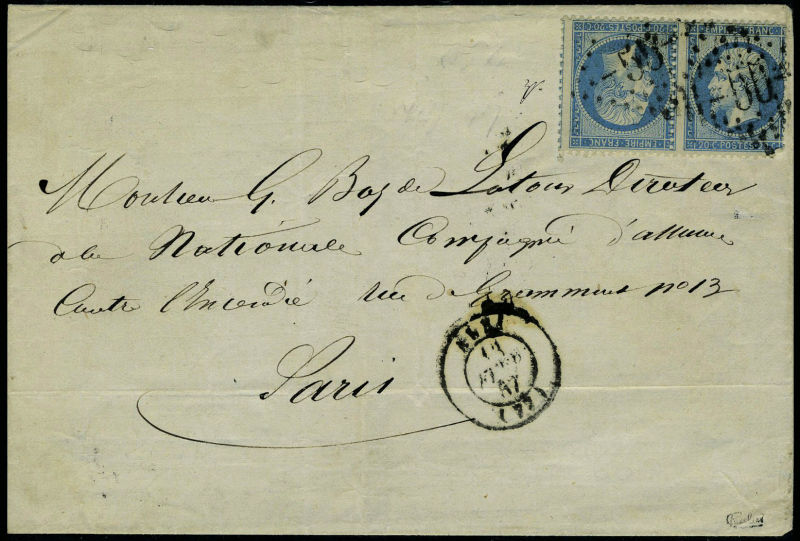 20 C POSTES 20 C
EMPIRE FRANC
EMPIRE FRANC
20 C POSTES 20 C
Monsieur G. Boz de Latour Directeur
de la Nationale Compagnie d'assurance
Contre l'Incendie rue de Grammont no 13
Paris